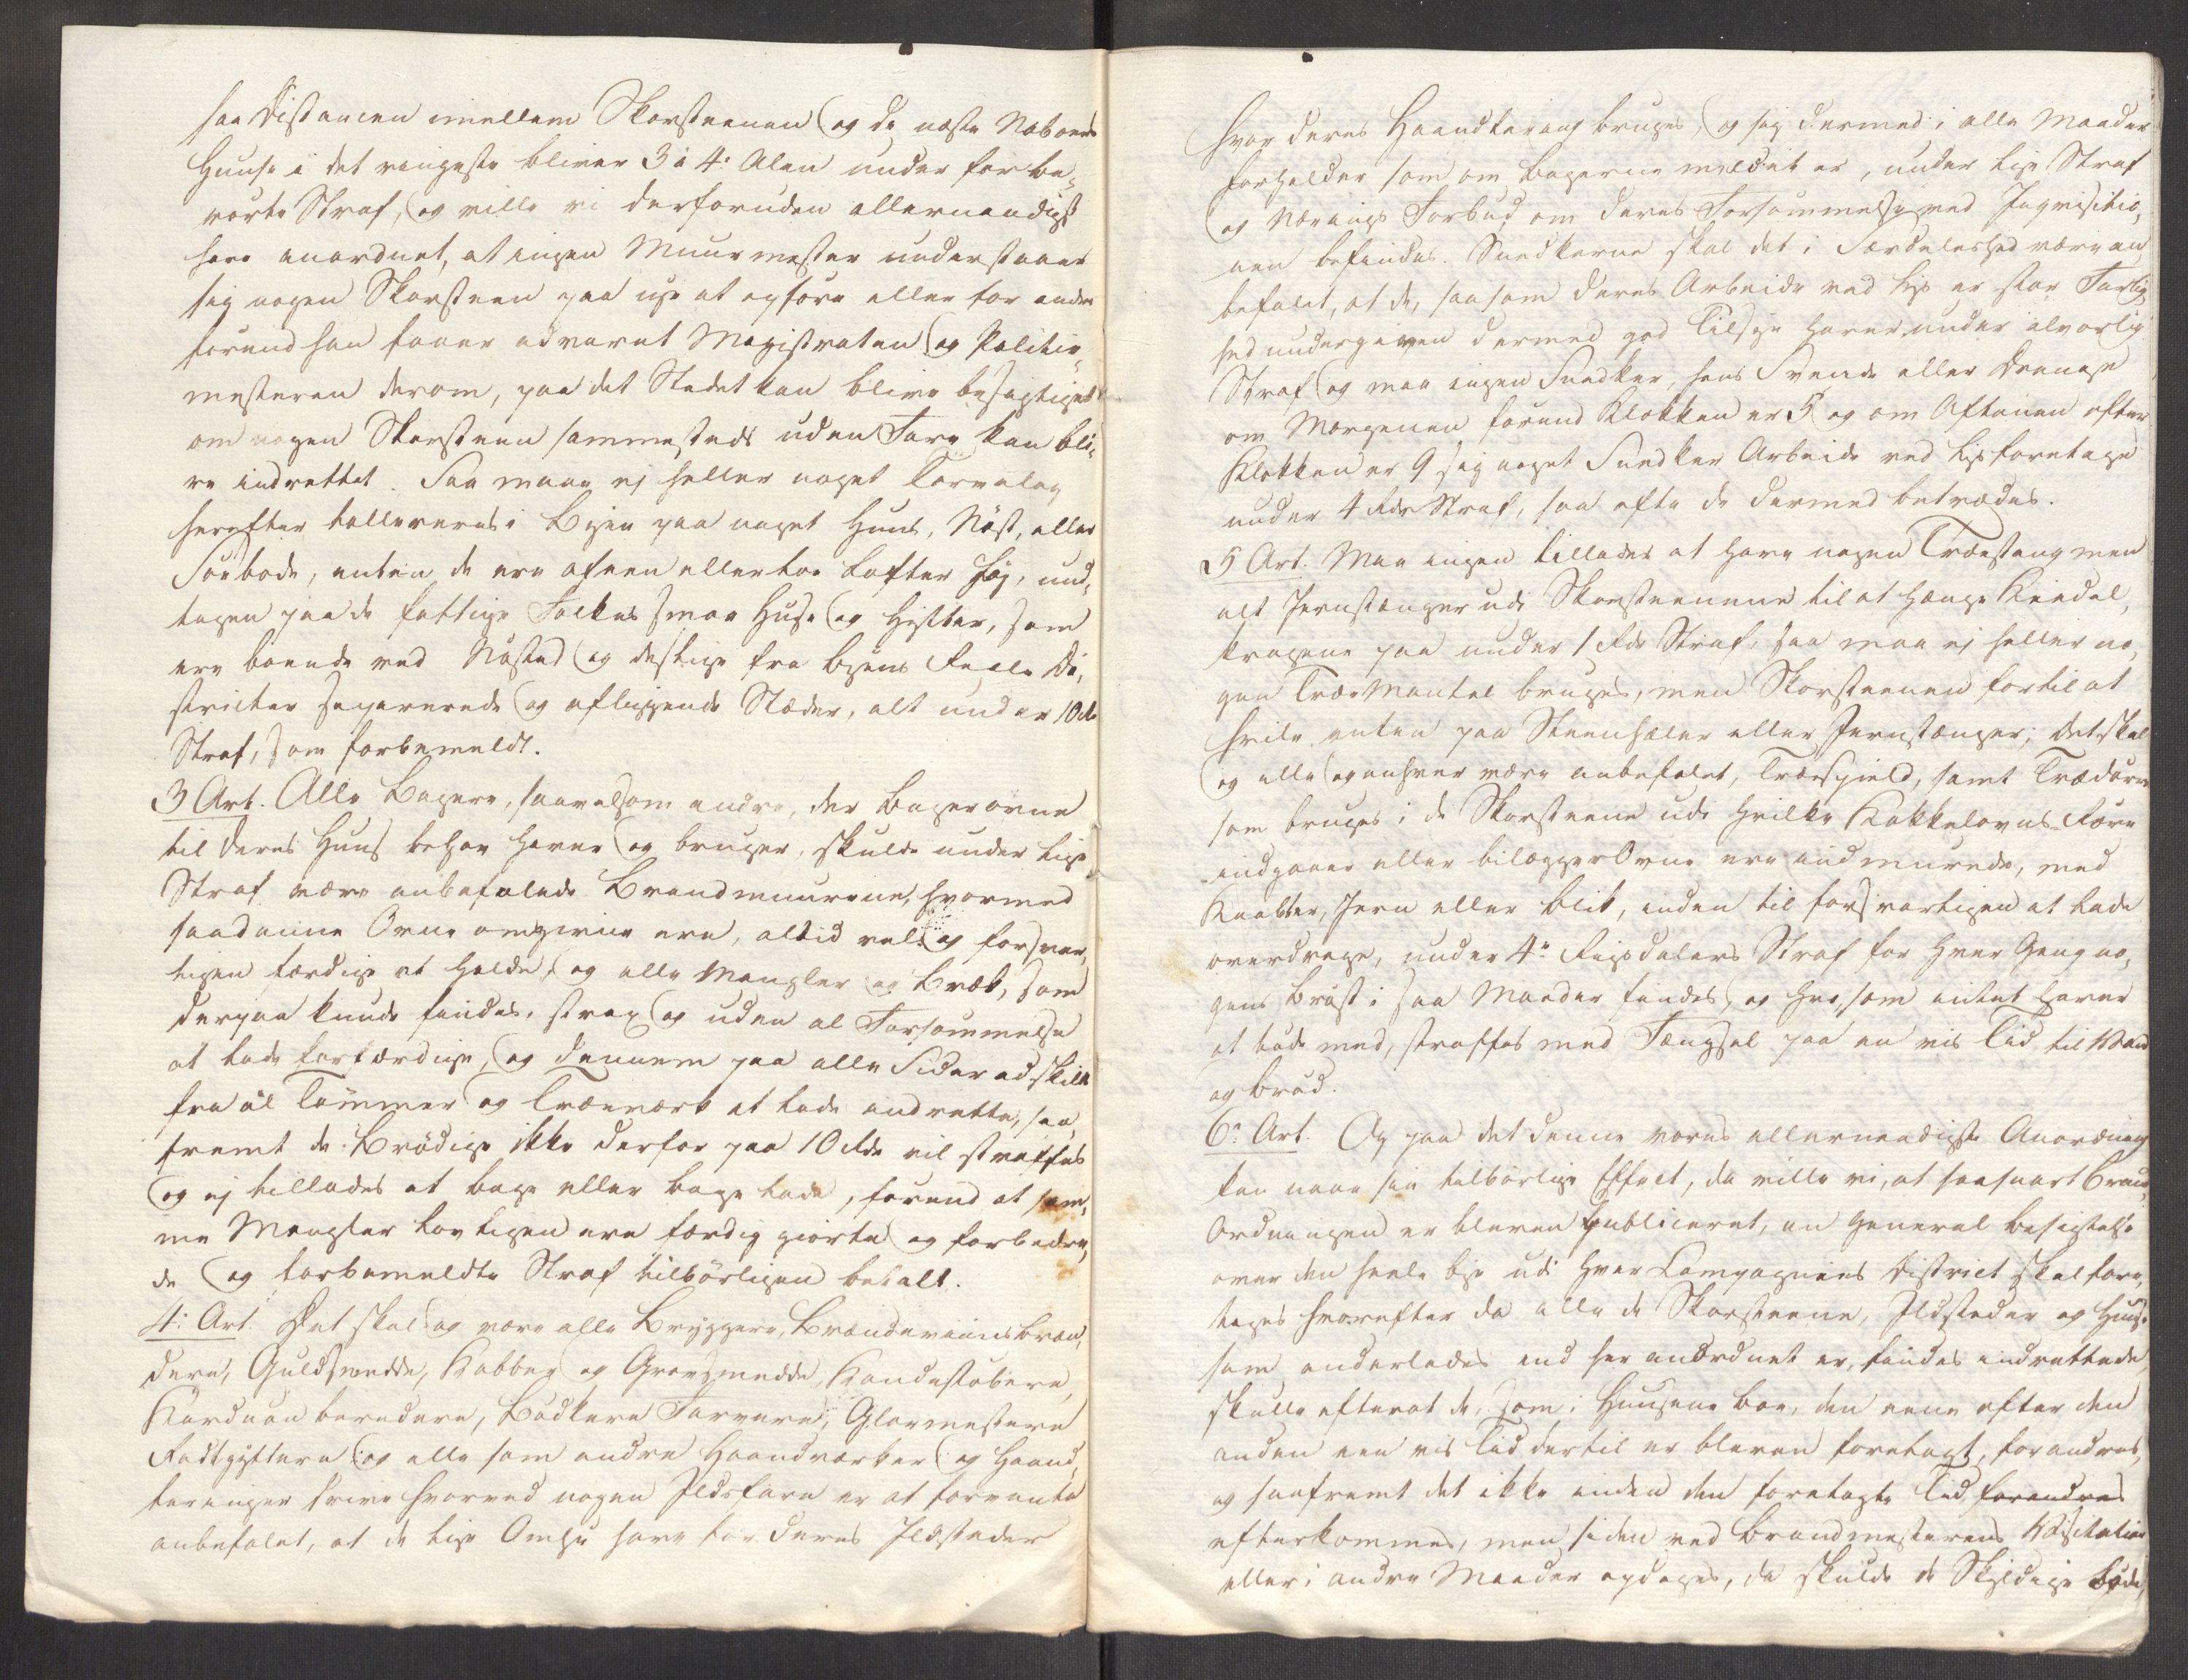 saa Distancen imellem Skorsteenen og de næste Naboers
Huuse i det ringeste bliver 3 à 4: Alen under forbe-
rørte Straf, og ville vi derforuden allernaadigst
have anordnet, at ingen Muurmester understaaer
sig nogen Skorsteen paa nye at opføre eller for andre
førend han faaer advaret Magistraten og Politie-
mesteren derom, paa det Stedet kan blive besigtiget
om nogen Skorsteen sammesteds uden Fare kan bli-
ve indrettet. Saa maae ej heller noget Torvelag
herefter tollereres i Byen paa noget Huus, Nøst, eller
Søebode, enten de ere af een eller toe Lofter høj, und-
tagen paa de fattige Folkes smaa Huse og Hytter, som
ere boende ved Nøsted og deslige fra Byens Reele Di-
stricter separerede og afliggende Stæder, alt under 10 rdr
Straf, som forbemeldt.
3 Art. Alle Bagere, saavelsom andre, der Bagerovne
til deres Huus behov haver og bruger, skulde under lige
Straf være anbefalede Brandmuurene, hvormed
saadanne Ovne omgivne ere, altid vel og forsvar-
ligen færdige at holde, og alle Mangler og Bræk, som
derpaa kunde findes, strax og uden al Forsømmelse
at lade forfærdige, og dennem paa alle Sider adskilt
fra al Tømmer og Træeværk at lade indrette, saa-
fremt de Brødige ikke derfor paa 10 Rdr vil straffes
og ej tillades at bage eller bage lade, førend at sam-
me Mangler lovligen ere færdig giorte og forbedre-
de og forbemeldte Straf tilbørligen betalt.
4: Art. Det skal og være alle Bryggere, Brændeviinsbræn-
dere, Guldsmedde, Kobber og Grovsmedde, Kandestøbere,
Karduan beredere, Bødkere Farvere, Glarmestere
Rødgyttere og alle som andre Haandværker og Haand-
teringer drive hvorved nogen Ildsfare er at forvente
anbefalet, at de lige Omhu have for deres Ildsteder
hvor deres Haandtering bruges, og sig dermed i alle Maader
forholder som om Bagerne meldet er, under lige Straf
og Nærings Forbud, om deres Forsømmelse ved Inqvisitio-
nen befindes. Snedkerne skal det i Særdeleshed være an-
befalet, at de, saasom deres Arbeide ved Lys er stor Farlig-
hed undergiven dermed god Tilsyn haver under alvorlig
Straf og maa ingen Snedker, hans Svende eller Drenge
om Morgenen førend Klokken er 5 og om Aftenen efter
Klokken er 9 sig noget Snedker Arbeide ved Lys foretage
under 4 Rdr Straf, saa ofte de dermed betrædes.
5 Art. Maa ingen tillades at have nogen Træestang men
alt Jernstænger udi Skorsteenene til at hænge Kiedel,
krogene paa under 1 Rdr Straf, saa maa ej heller no-
gen Træe Mantel bruges, men Skorsteenen fortil at
hvile enten paa Steenhæler eller Jernstænger; det skal
og alle og enhver være anbefalet, Træespield, samt Trædøre
som bruges i de Skorsteene udi hvilke Kakkelovns-Røre
indgaaer eller bilægger Ovne ere indmurede, med
Kaabber, Jern eller Blik, inden til forsvarligen at lade
overdrage, under 4: Rigsdalers Straf for hver Gang no-
gens Brøst i saa Maader findes, og hvo, som intet haver
at bøde med, straffes med Fængsel paa en vis Tid til Vand
og brød.
6: Art. Og paa det denne vores allernaadigste Anordning
kan naae sin tilbørlige Effect, da ville vi, at saasnart Brand-
Ordningen er bleven publiceret, en General besigtelse
over den heele Bye udi hver Compagniens District skal fore-
tages hvorefter da alle de Skorsteene, Ildsteder og Huuse
som anderledes end her anordnet er, findes indrettede,
skulle efterat de, som i Huusene boe, den eene efter den
anden een vis Tid dertil er bleven foretagt, forandres,
og saafremt det ikke inden den foretagte Tid forandres
efterkommes, men siden ved Brandmesterens Visitation
eller i andre Maader opdages, da skulde de Skyldige bøde,